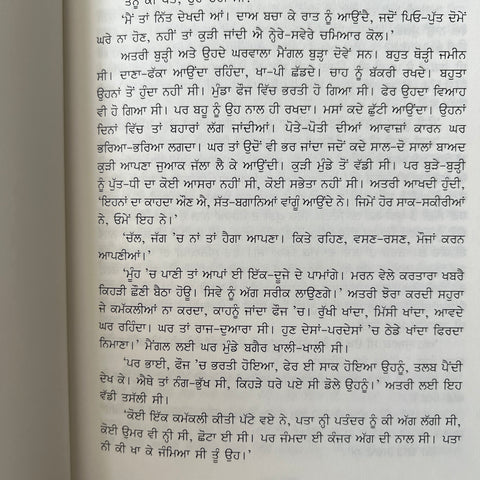 'ਮੈਂ ਤਾਂ ਨਿੱਤ ਦੇਖਦੀ ਆਂ। ਦਾਅ ਬਚਾ ਕੇ ਰਾਤ ਨੂੰ ਆਉਂਦੈ, ਜਦੋਂ ਪਿਓ-ਪੁੱਤ ਦੋਮੇਂ
ਘਰੇ ਨਾ ਹੋਣ, ਨਹੀਂ ਤਾਂ ਕੁੜੀ ਜਾਂਦੀ ਐ ਨ੍ਹੇਰੇ-ਸਵੇਰੇ ਚਮਿਆਰ ਕੋਲ।'
ਅਤਰੀ ਬੁੜ੍ਹੀ ਅਤੇ ਉਹਦੇ ਘਰਵਾਲਾ ਮੈਂਗਲ ਬੁੜ੍ਹਾ ਦੋਵੇਂ ਸਨ। ਬਹੁਤ ਥੋੜ੍ਹੀ ਜਮੀਨ
ਸੀ। ਦਾਣਾ-ਫੱਕਾ ਆਉਂਦਾ ਰਹਿੰਦਾ, ਖਾ-ਪੀ ਛੱਡਦੇ। ਚਾਹ ਨੂੰ ਬੱਕਰੀ ਰਖਦੇ। ਬਹੁਤਾ
ਉਹਨਾਂ ਤੋਂ ਹੁੰਦਾ ਨਹੀਂ ਸੀ। ਮੁੰਡਾ ਫੌਜ ਵਿੱਚ ਭਰਤੀ ਹੋ ਗਿਆ ਸੀ। ਫੇਰ ਉਹਦਾ ਵਿਆਹ
ਵੀ ਹੋ ਗਿਆ ਸੀ। ਪਰ ਬਹੂ ਨੂੰ ਉਹ ਨਾਲ ਹੀ ਰਖਦਾ। ਮਸਾਂ ਕਦੇ ਛੁੱਟੀ ਆਉਂਦਾ। ਉਹਨਾਂ
ਦਿਨਾਂ ਵਿੱਚ ਤਾਂ ਬਹਾਰਾਂ ਲੱਗ ਜਾਂਦੀਆਂ। ਪੋਤੇ-ਪੋਤੀ ਦੀਆਂ ਆਵਾਜ਼ਾਂ ਕਾਰਨ ਘਰ
ਭਰਿਆ-ਭਰਿਆ ਲਗਦਾ। ਘਰ ਤਾਂ ਉਦੋਂ ਵੀ ਭਰ ਜਾਂਦਾ ਜਦੋਂ ਕਦੇ ਸਾਲ-ਦੋ ਸਾਲਾਂ ਬਾਅਦ
ਕੁੜੀ ਆਪਣਾ ਜੁਆਕ ਜੱਲਾ ਲੈ ਕੇ ਆਉਂਦੀ। ਕੁੜੀ ਮੁੰਡੇ ਤੋਂ ਵੱਡੀ ਸੀ। ਪਰ ਬੁੜੇ-ਬੁੜ੍ਹੀ
ਨੂੰ ਪੁੱਤ-ਧੀ ਦਾ ਕੋਈ ਆਸਰਾ ਨਹੀਂ ਸੀ, ਕੋਈ ਸਭੇਤਾ ਨਹੀਂ ਸੀ। ਅਤਰੀ ਆਖਦੀ ਹੁੰਦੀ,
'ਇਹਨਾਂ ਦਾ ਕਾਹਦਾ ਔਣ ਐ, ਸੱਤ-ਬਗਾਨਿਆਂ ਵਾਂਗੂੰ ਆਉਂਦੇ ਨੇ। ਜਿਮੇਂ ਹੋਰ ਸਾਕ-ਸਕੀਰੀਆਂ
ਨੇ, ਓਮੇਂ ਇਹ ਨੇ।'
'ਚੱਲ, ਜੱਗ 'ਚ ਨਾਂ ਤਾਂ ਹੈਗਾ ਆਪਣਾ। ਕਿਤੇ ਰਹਿਣ, ਵਸਣ-ਰਸਣ, ਮੌਜਾਂ ਕਰਨ
ਆਪਣੀਆਂ।'
'ਮੂੰਹ 'ਚ ਪਾਣੀ ਤਾਂ ਆਪਾਂ ਈ ਇੱਕ-ਦੂਜੇ ਦੇ ਪਾਮਾਂਗੇ। ਮਰਨ ਵੇਲੇ ਕਰਤਾਰਾ ਖਬਰੈ
ਕਿਹੜੀ ਛੌਣੀ ਬੈਠਾ ਹੋਊ। ਸਿਵੇ ਨੂੰ ਅੱਗ ਸਰੀਕ ਲਾਉਣਗੇ।' ਅਤਰੀ ਝੋਰਾ ਕਰਦੀ ਸਹੁਰਾ
ਜੇ ਕਮੱਕਲੀਆਂ ਨਾ ਕਰਦਾ, ਕਾਹਨੂੰ ਜਾਂਦਾ ਫੌਜ 'ਚ। ਰੁੱਖੀ ਖਾਂਦਾ, ਮਿੱਸੀ ਖਾਂਦਾ, ਆਵਦੇ
ਘਰ ਰਹਿੰਦਾ। ਘਰ ਤਾਂ ਰਾਜ-ਦੁਆਰਾ ਸੀ। ਹੁਣ ਦੇਸਾਂ-ਪਰਦੇਸਾਂ 'ਚ ਠੇਡੇ ਖਾਂਦਾ ਫਿਰਦਾ
ਨਿਮਾਣਾ।' ਮੈਂਗਲ ਲਈ ਘਰ ਮੁੰਡੇ ਬਗੈਰ ਖਾਲੀ-ਖਾਲੀ ਸੀ।
'ਪਰ ਭਾਈ, ਫੌਜ 'ਚ ਭਰਤੀ ਹੋਇਆ, ਫੇਰ ਈ ਸਾਕ ਹੋਇਆ ਉਹਨੂੰ, ਤਲਬ ਪੈਂਦੀ
ਦੇਖ ਕੇ। ਐਥੇ ਤਾਂ ਨੰਗ-ਭੁੱਖ ਸੀ, ਕਿਹੜੇ ਧਰੇ ਪਏ ਸੀ ਡੋਲੇ ਉਹਨੂੰ।' ਅਤਰੀ ਲਈ ਇਹ
ਵੱਡੀ ਤਸੱਲੀ ਸੀ।
'ਕੋਈ ਇੱਕ ਕਮੱਕਲੀ ਕੀਤੀ ਪੱਟੇ ਵਏ ਨੇ, ਪਤਾ ਨ੍ਹੀ ਪਤੰਦਰ ਨੂੰ ਕੀ ਅੱਗ ਲੱਗੀ ਸੀ,
ਕੋਈ ਉਮਰ ਵੀ ਨ੍ਹੀ ਸੀ, ਛੋਟਾ ਈ ਸੀ। ਪਰ ਜੰਮਦਾ ਈ ਕੰਜਰ ਅੱਗ ਦੀ ਨਾਲ ਸੀ। ਪਤਾ
ਨੀ ਕੀ ਖਾ ਕੇ ਜੰਮਿਆ ਸੀ ਤੂੰ ਉਹ।'